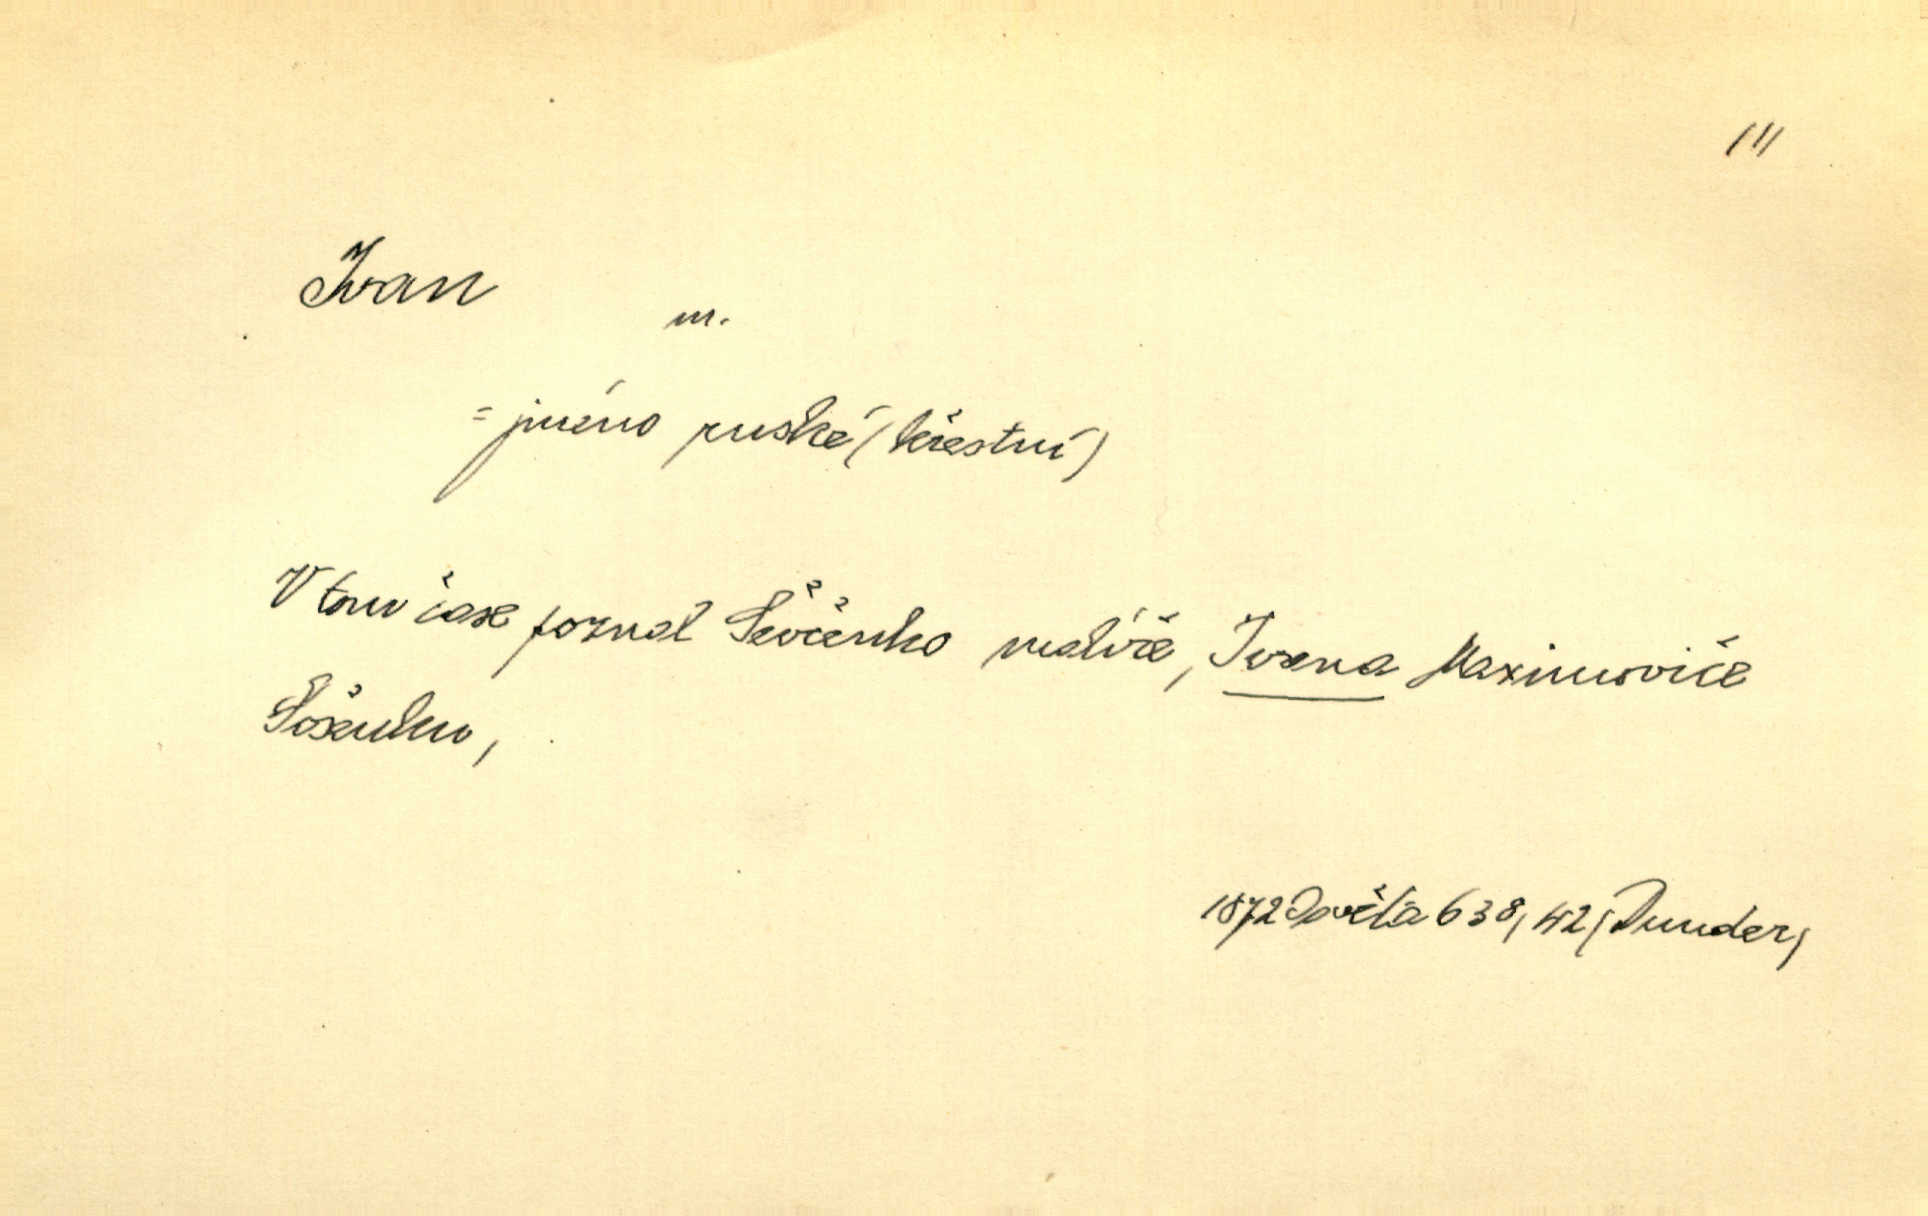 111
Ivan
m.
= jméno ruské (křestní)
V tom čase poznal Ševčenko malíře, Ivana Maximoviče
Šošenku,
1872 Osvěta 638, 42 (Dunder)